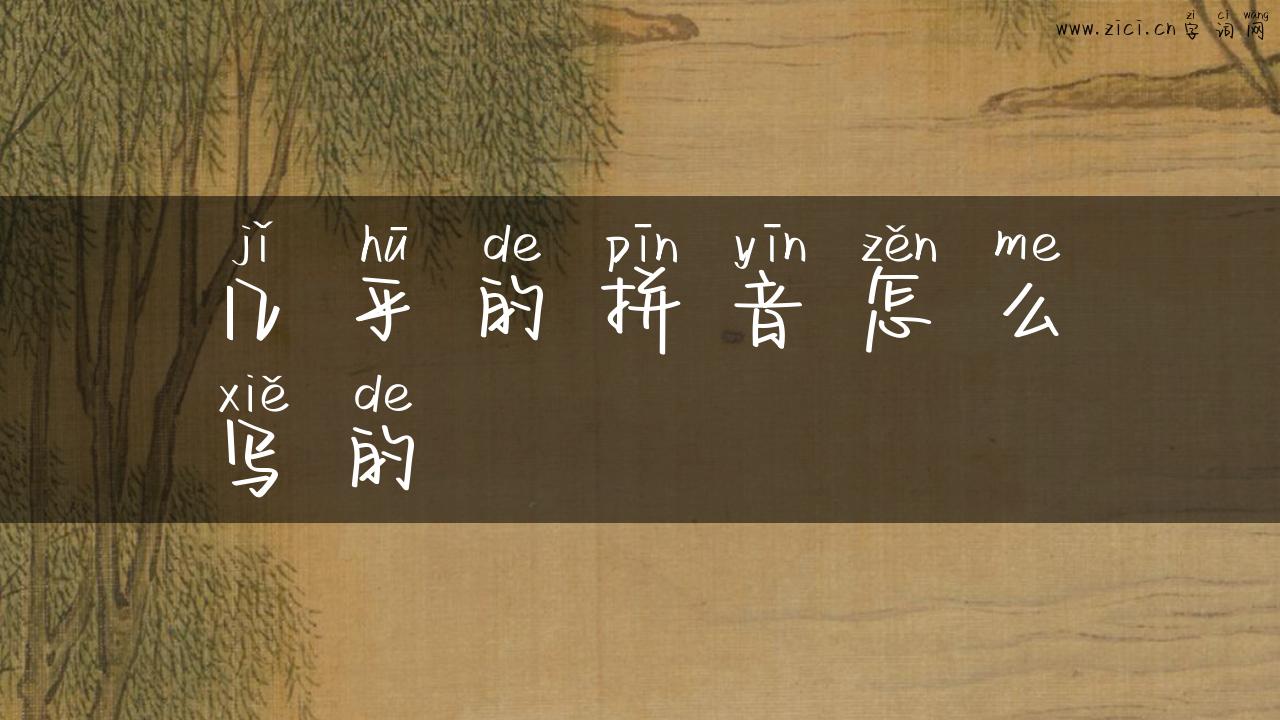 zì cí wǎng
www.zici.cn 字词网
jǐ hū de pīn yīn zěn me
几乎的拼音怎么
xiě de
写的